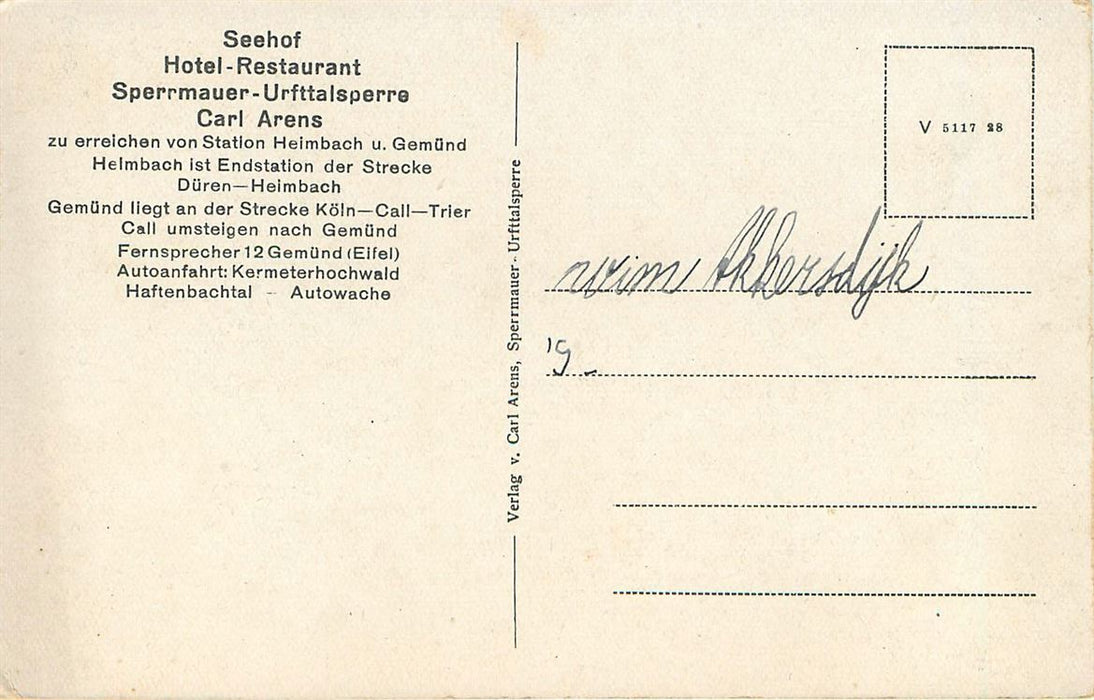 Seehof
Hotel-Restaurant
Sperrmauer-Urfttalsperre
Carl Arens
zu erreichen von Station Heimbach u. Gemünd
Heimbach ist Endstation der Strecke
Düren—Heimbach
Gemünd liegt an der Strecke Köln—Call—Trier
Call umsteigen nach Gemünd
Fernsprecher 12 Gemünd (Eifel)
Autoanfahrt: Kermeterhochwald
Haftenbachtal – Autowache
Verlag v. Carl Arens, Sperrmauer-Urfttalsperre
V 5117 28
wim Akkersdijk
'9-